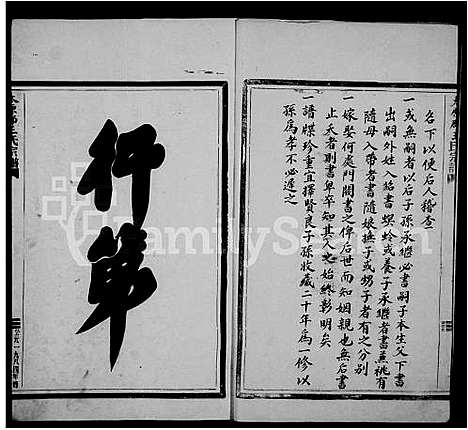 名下以便后人稽查
一或無嗣者以后子孫承繼必書嗣子本生父下書
出嗣外姓入紹書螟蛉或養子承繼者書兼祧有
隨母入帶者書隨娘撫子或甥子者有之分别
一嫁娶何處門閥書之俾后世而知姻親也無后書
止夭者則書卑卒知其人之始終彰明矣
一譜牒珍重宜擇賢良子孫收藏二十年為一修以
孫為孝不必遲之
行第
FamilySearch